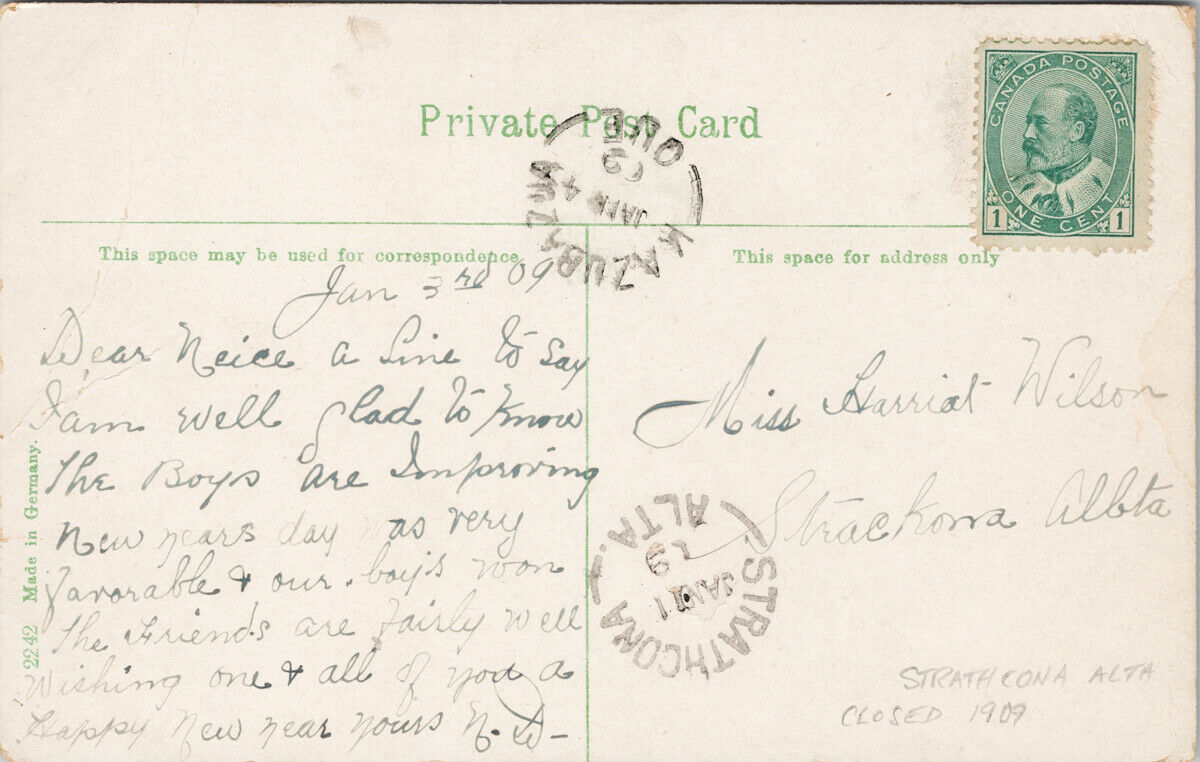 Private Post Card
CANADA POSTAGE
1 ONE CENT 1
KAZUBAZUA
QUE
JAN 4
09
This space may be used for correspondence
This space for address only
Jan 3rd 09
Dear Neice a Line to Say
I am well glad to Know
the Boys are Improving
New years day was very
favorable & our boys won
The Friends are fairly well
Wishing one & all of you a
Happy New year yours N. D-
Miss Harriat Wilson
Strackona Albta
STRATHCONA
ALTA.
JAN 11
9
STRATHCONA ALTA
CLOSED 1909
2242 Made in Germany.